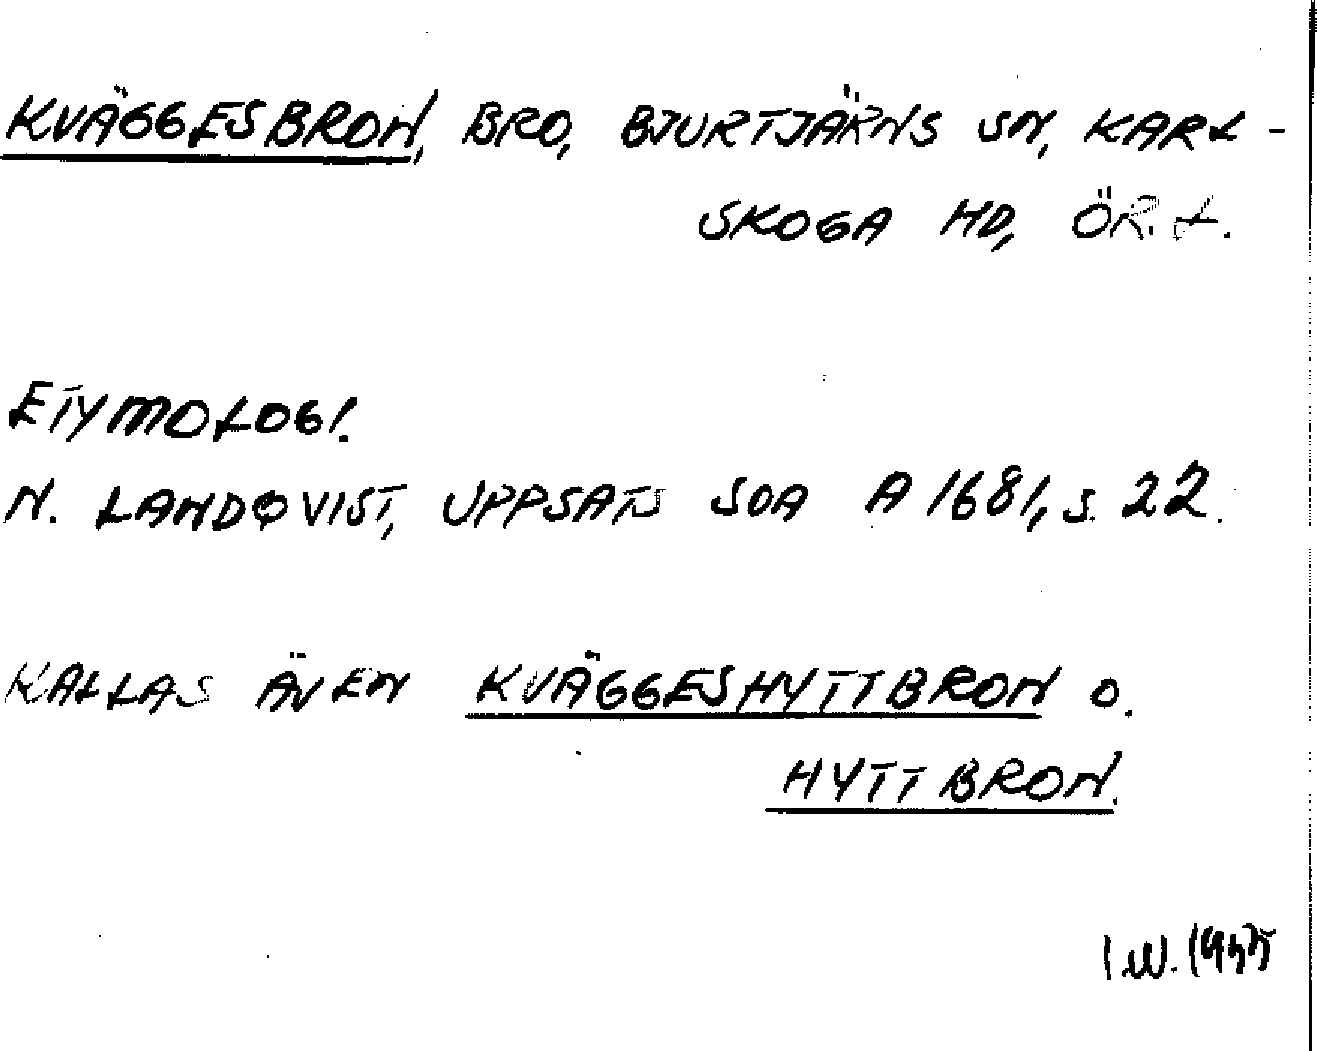 KVÄGGESBRON, BRO, BJURTJÄRNS SN, KARL-
SKOGA HD, ÖR. L.
ETYMOLOGI.
N. LANDQVIST, UPPSATS SOA A 1681, S. 22.
KALLAS ÄVEN KVÄGGESHYTTBRON O.
HYTTBRON.
I.W.